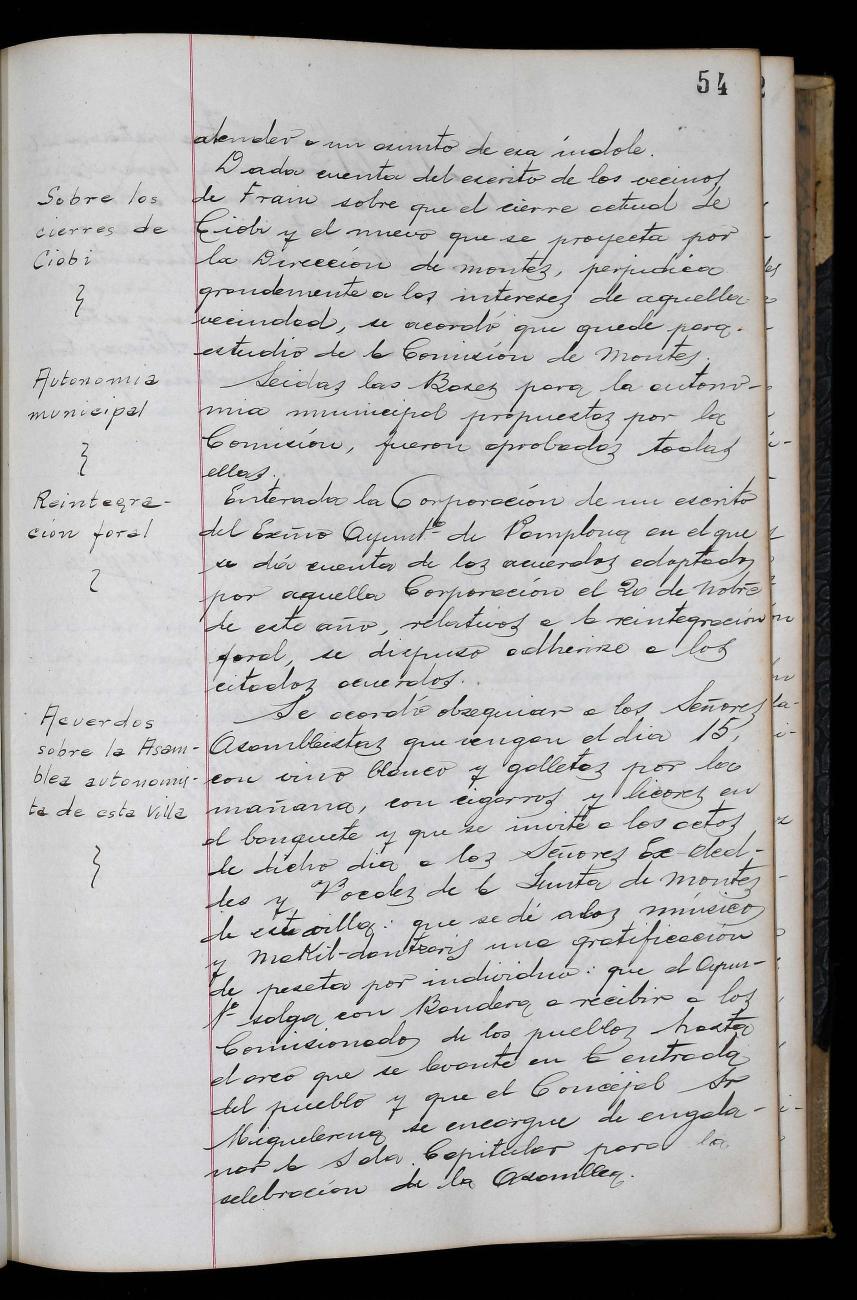 54
atender a un asunto de esa índole.
Sobre los
cierres de
Ciobi
Dada cuenta del escrito de los vecinos
de Frain sobre que el cierre actual de
Ciobi y el nuevo que se proyecta por
la Dirección de montes, perjudica
grandemente a los intereses de aquella
vecindad, se acordó que quede para
estudio de la Comisión de Montes.
Autonomia
municipal
Leidas las Bases para la autono-
mia municipal propuestas por la
Comisión, fueron aprobadas todas
ellas.
Reintegra-
ción foral
Enterada la Corporación de un escrito
del Exmo Ayuntº de Pamplona en el que
se dá cuenta de los acuerdos adoptados
por aquella Corporación el 20 de Nobre
de este año, relativos a la reintegración
foral, se dispuso adherirse a los
citados acuerdos.
Acuerdos
sobre la Asam-
blea autonomis-
ta de esta Villa
Se acordó obsequiar a los Señores
Asambleistas que vengan el dia 15,
con vino blanco y galletas por la
mañana, con cigarros y licores en
el banquete y que se invite a los actos
de dicho dia a los Señores Ex-Alcal-
des y Vocales de la Junta de montes
de esta villa: que se dé a los músicos
y maKil-dantzaris una gratificación
de peseta por individuo: que el Ayun-
tº salga con Bandera a recibir a los
Comisionados de los pueblos hasta
el arco que se levante en la entrada
del pueblo y que el Concejal Sr
Miguelerena se encargue de engala-
nar la Sala Capitular para la
selebración de la Asamblea.